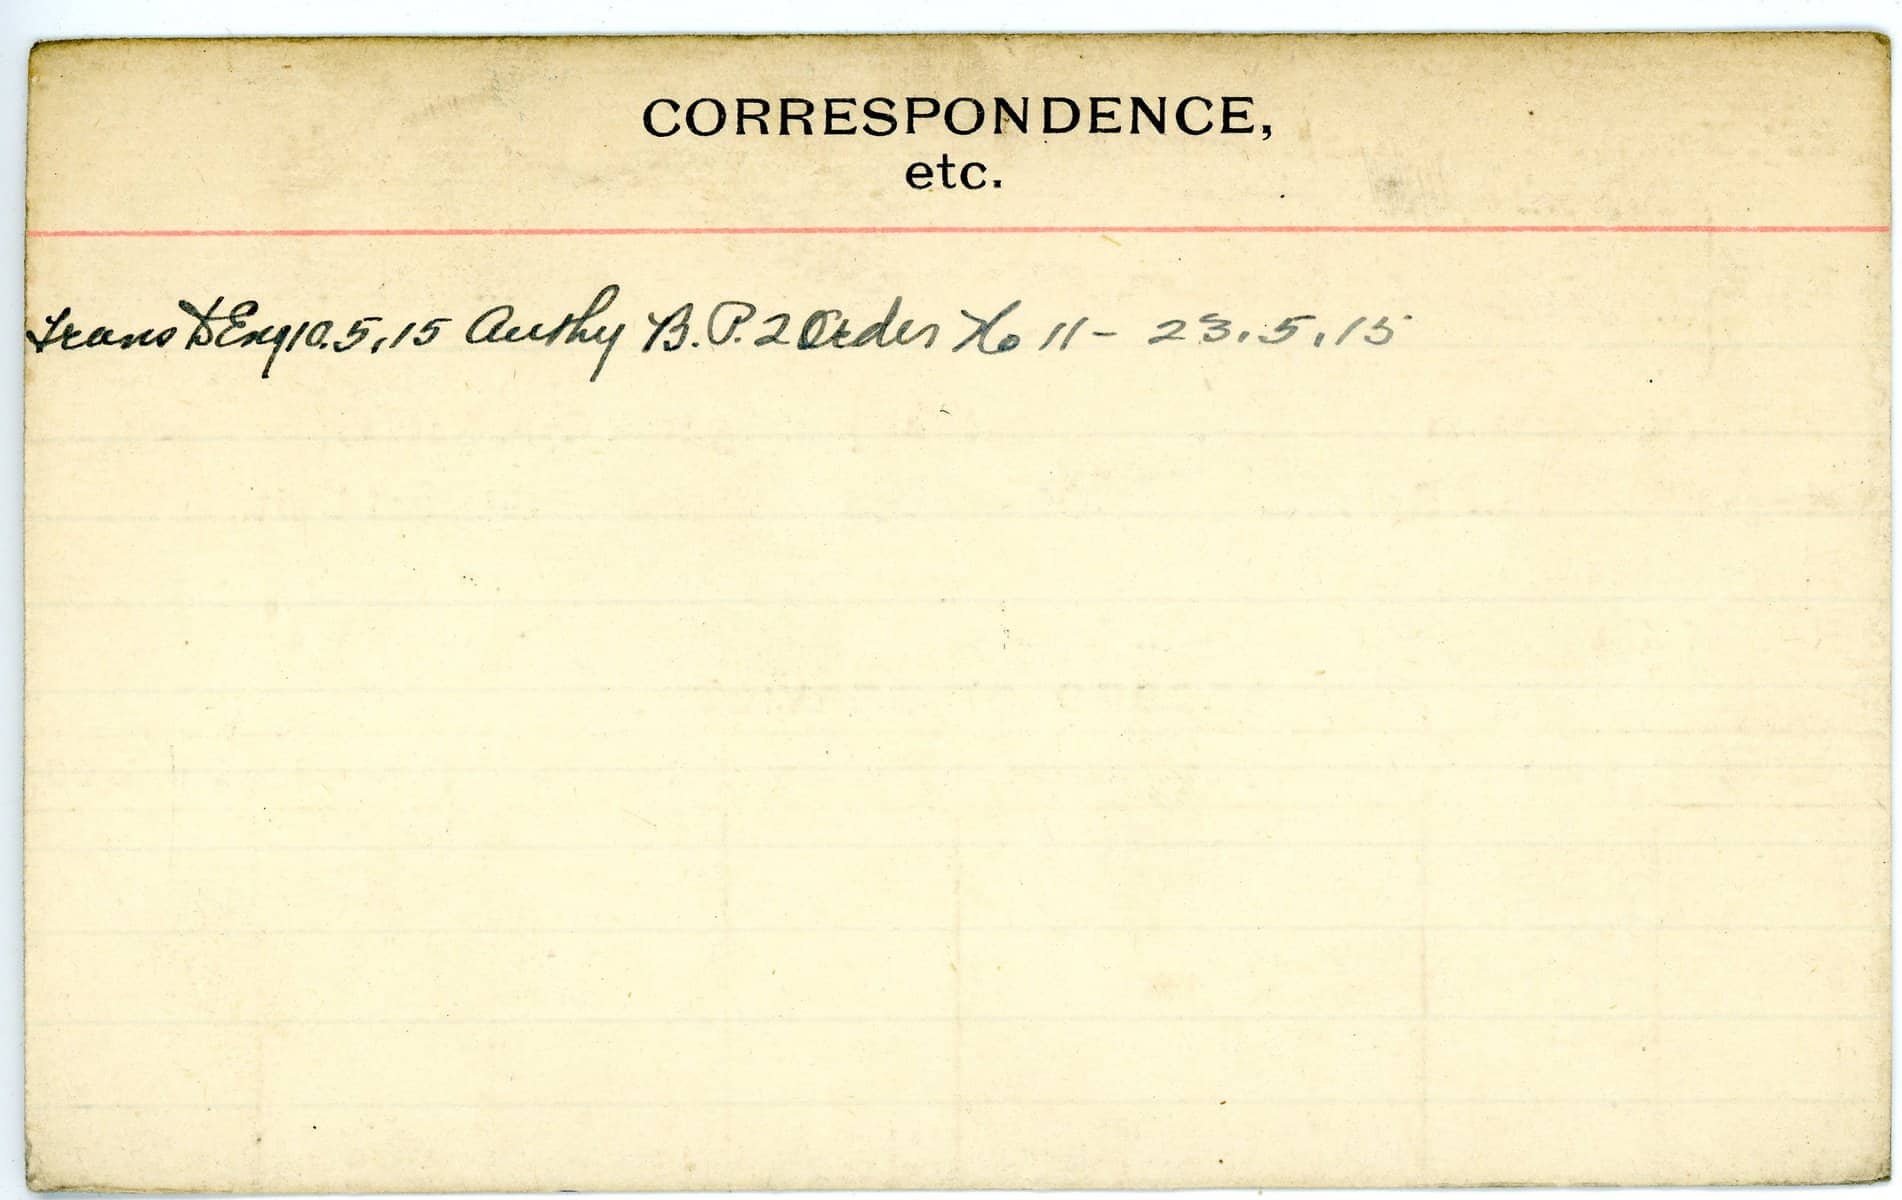 CORRESPONDENCE,
etc.
Trans to Eng 10.5.15 Authy B.P.2 Order No 11 - 23.5.15